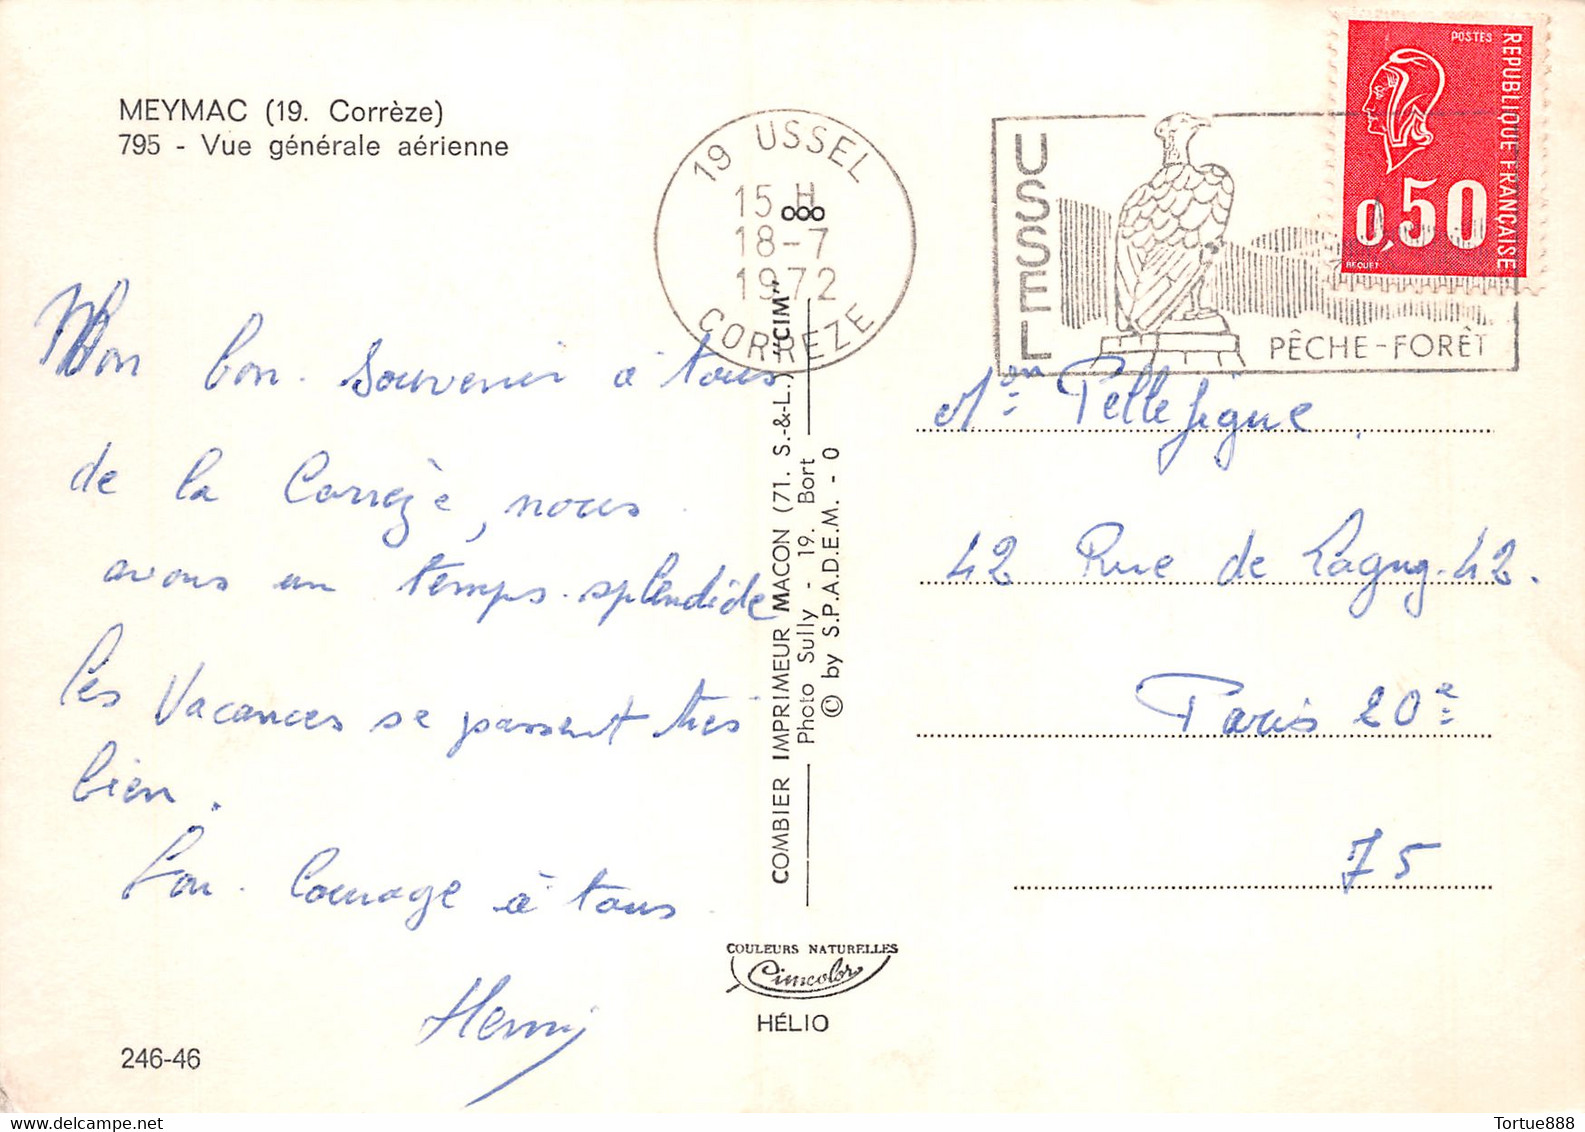 MEYMAC (19. Corrèze)
795 - Vue générale aérienne
19 USSEL
15 H
18-7
1972
CORREZE
USSEL
PÊCHE-FORÊT
POSTES
REPUBLIQUE FRANÇAISE
0,50
BEQUET
Mon bon souvenir à tous
de la Corrèze, nous
avons un temps splendide
les Vacances se passent très
bien.
Bon Courage à tous
Henry
Mon Pellefigue
42 Rue de Lagny.42.
Paris 20e
75
COMBIER IMPRIMEUR MACON (71. S.-&-L.) "CIM"
Photo Sully - 19. Bort
© by S.P.A.D.E.M. - 0
COULEURS NATURELLES
Cimcolor
HÉLIO
246-46
Tortue888